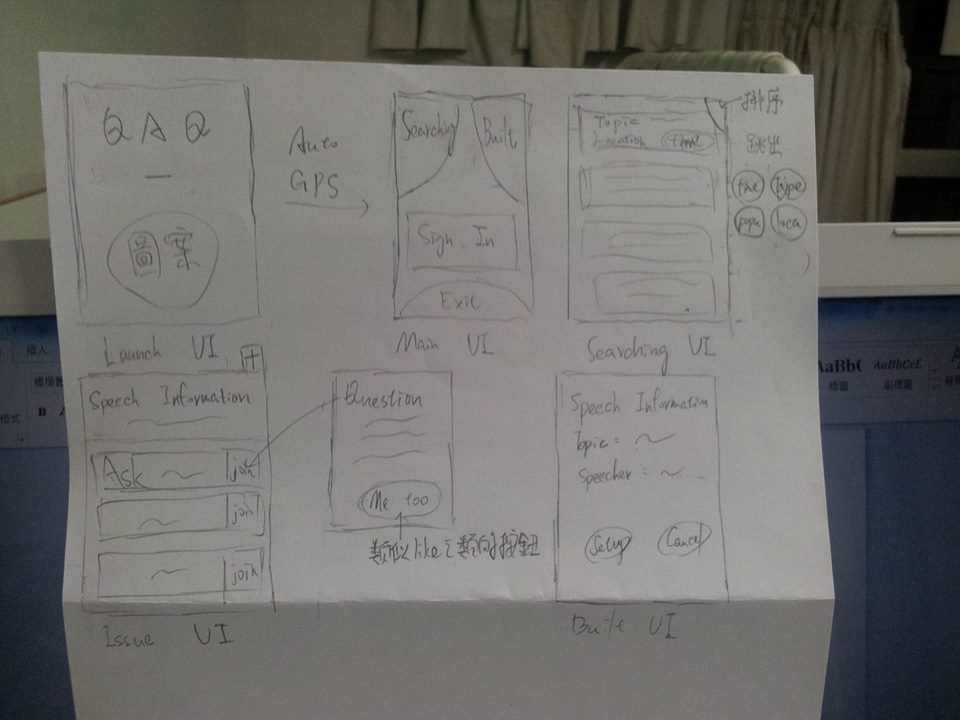 QAQ
圖案
Launch UI
Auto
GPS
Searching
Built
Sign In
Exit
Main UI
Topic
Location
time
排序
跳出
time
type
popu
loca
Searching UI
+
Speech Information
Ask
join
join
join
Issue UI
Question
Me too
類似like之類的按鈕
Speech Information
Topic =
Speecher =
Setup
Cancel
Built UI
插入
B
AaBbC
AaBbCcD
標題
副標題
格式